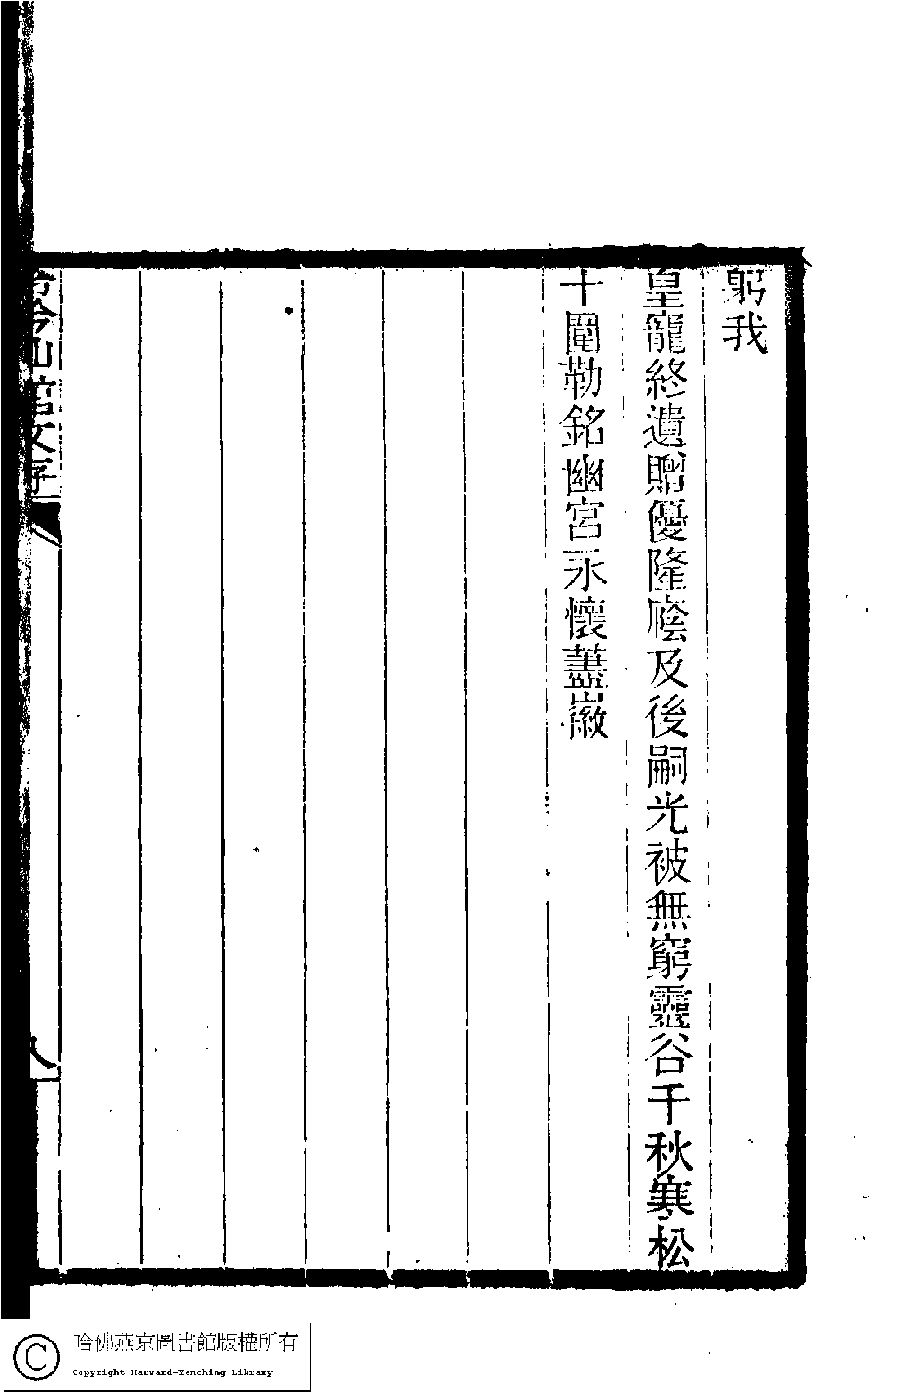 躬我
皇寵終遺贈優隆廕及後嗣光被無窮靈谷千秋寒松
十圍勒銘幽宮永懷藎徽
山館文存
八
哈佛燕京圖書館版權所有
Copyright Harvard-Yenching Library